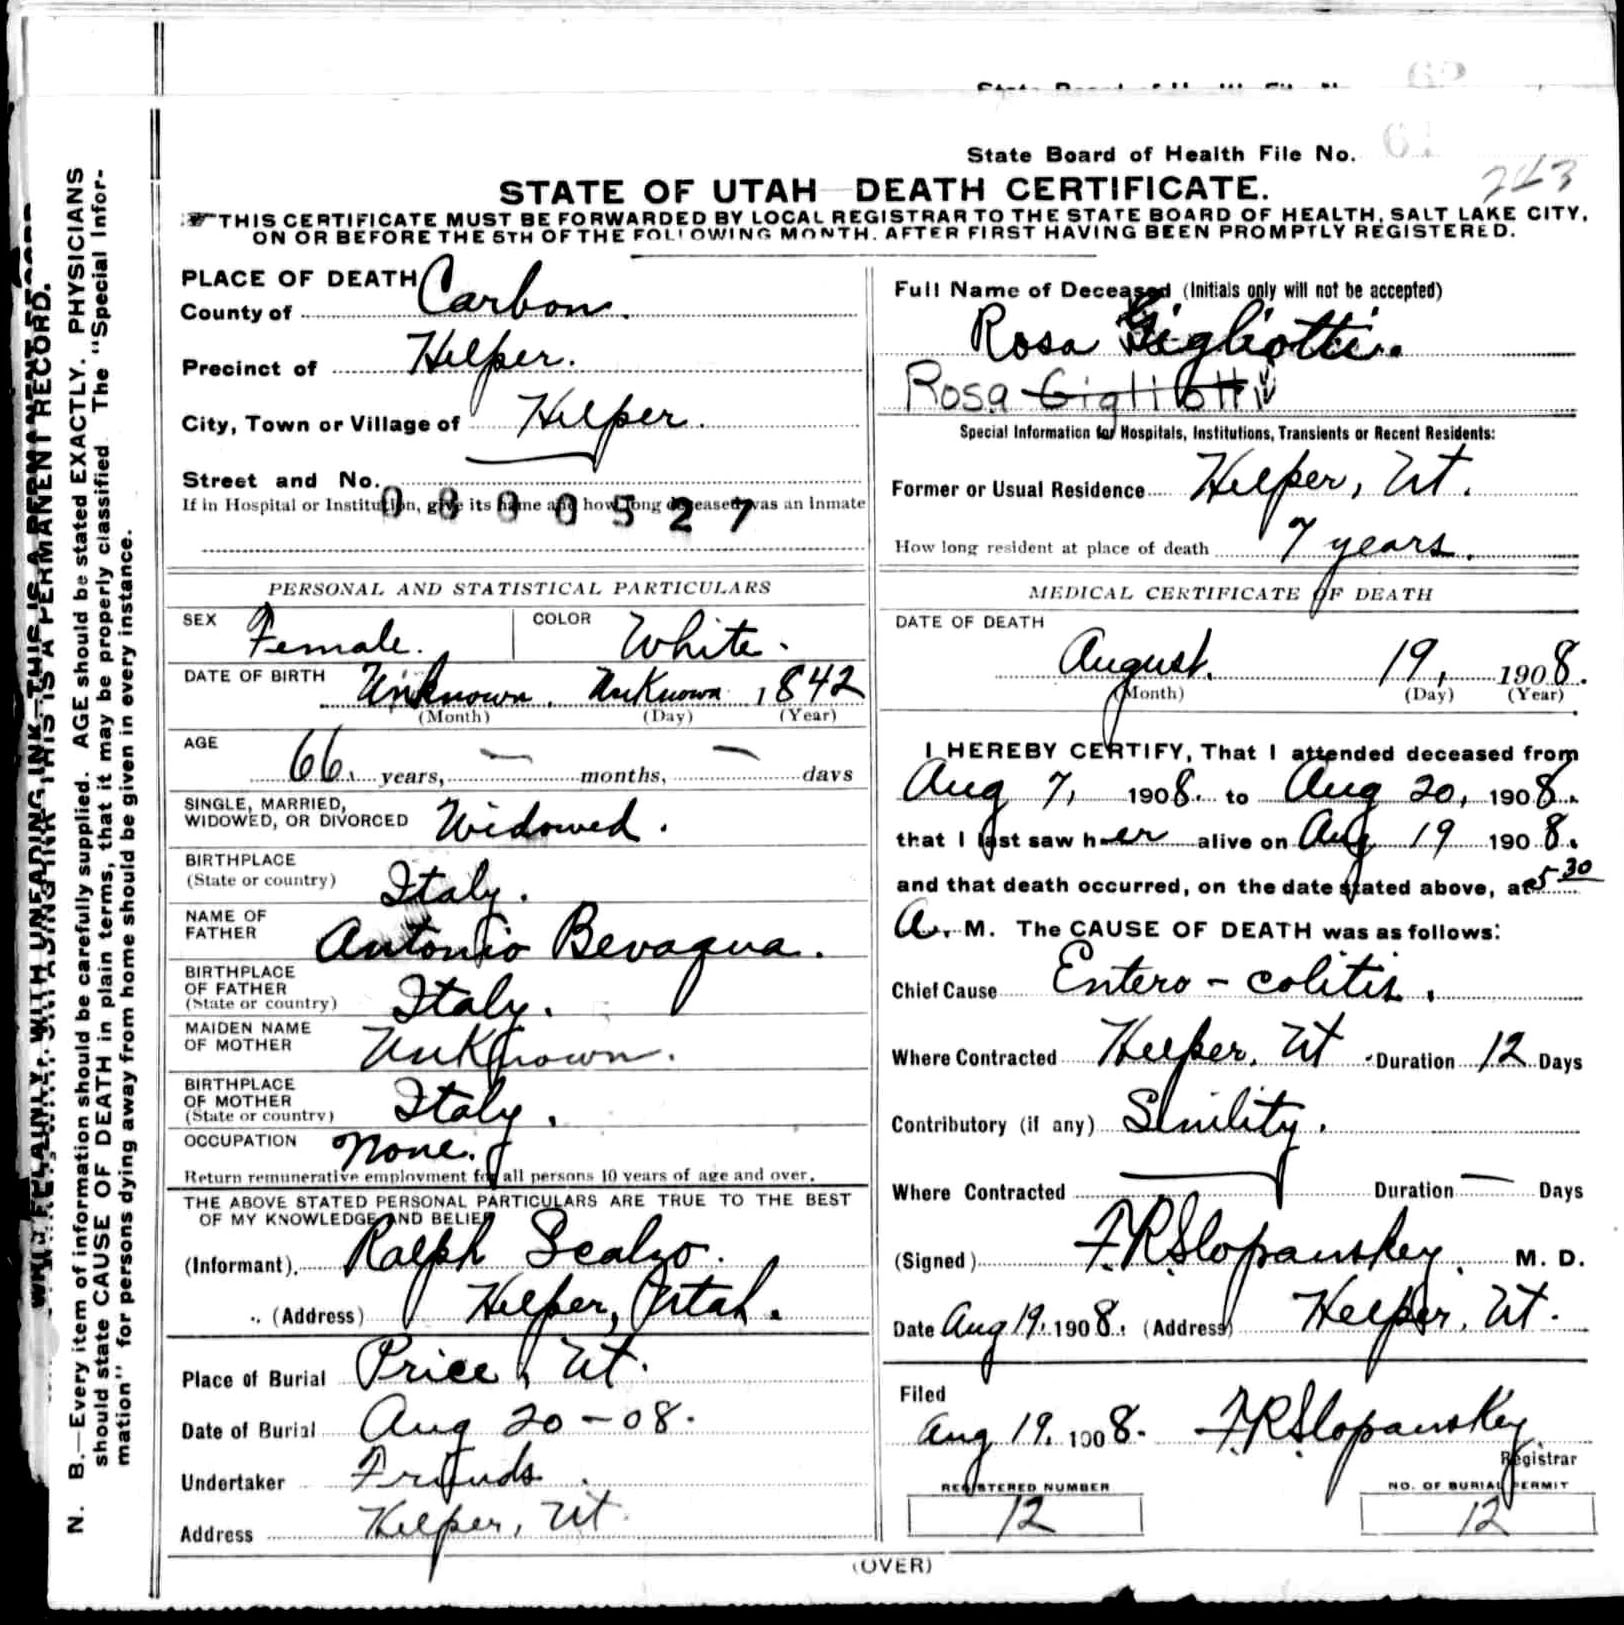 State Board of Health File No.
243
STATE OF UTAH DEATH CERTIFICATE.
THIS CERTIFICATE MUST BE FORWARDED BY LOCAL REGISTRAR TO THE STATE BOARD OF HEALTH, SALT LAKE CITY,
ON OR BEFORE THE 5TH OF THE FOLLOWING MONTH. AFTER FIRST HAVING BEEN PROMPTLY REGISTERED.
PLACE OF DEATH
County of Carbon.
Precinct of Helper.
City, Town or Village of Helper.
Street and No.
If in Hospital or Institution, give its name and how long deceased was an Inmate
0800527
PERSONAL AND STATISTICAL PARTICULARS
SEX Female. COLOR White.
DATE OF BIRTH Unknown. Unknown 1842
(Month) (Day) (Year)
AGE 66. years, — months, — days
SINGLE, MARRIED,
WIDOWED, OR DIVORCED Widowed.
BIRTHPLACE
(State or country) Italy.
NAME OF
FATHER Antonio Bevaqua.
BIRTHPLACE
OF FATHER
(State or country) Italy.
MAIDEN NAME
OF MOTHER Unknown.
BIRTHPLACE
OF MOTHER
(State or country) Italy.
OCCUPATION None.
Return remunerative employment for all persons 10 years of age and over.
THE ABOVE STATED PERSONAL PARTICULARS ARE TRUE TO THE BEST
OF MY KNOWLEDGE AND BELIEF
(Informant) Ralph Scalzo.
(Address) Helper, Utah.
Place of Burial Price, Ut.
Date of Burial Aug 20-08.
Undertaker Friends.
Address Helper, Ut.
Full Name of Deceased (Initials only will not be accepted)
Rosa Gigliotti.
Rosa Gigliotti
Special Information for Hospitals, Institutions, Transients or Recent Residents:
Former or Usual Residence Helper, Ut.
How long resident at place of death 7 years.
MEDICAL CERTIFICATE OF DEATH
DATE OF DEATH
August. 19, 1908.
(Month) (Day) (Year)
I HEREBY CERTIFY, That I attended deceased from
Aug 7, 1908. to Aug 20, 1908.
that I last saw her alive on Aug 19 1908.
and that death occurred, on the date stated above, at 5 30
A. M. The CAUSE OF DEATH was as follows:
Chief Cause Entero-colitis.
Where Contracted Helper, Ut Duration 12 Days
Contributory (if any) Senility.
Where Contracted — Duration — Days
(Signed) F.R. Slopanskey. M. D.
Date Aug 19. 1908. (Address) Helper, Ut.
Filed
Aug 19. 1908. F.R. Slopanskey
Registrar
REGISTERED NUMBER
12
NO. OF BURIAL PERMIT
12
(OVER)
WRITE PLAINLY, WITH UNFADING INK—THIS IS A PERMANENT RECORD.
N. B.—Every item of information should be carefully supplied. AGE should be stated EXACTLY. PHYSICIANS
should state CAUSE OF DEATH in plain terms, that it may be properly classified The "Special Infor-
mation" for persons dying away from home should be given in every instance.